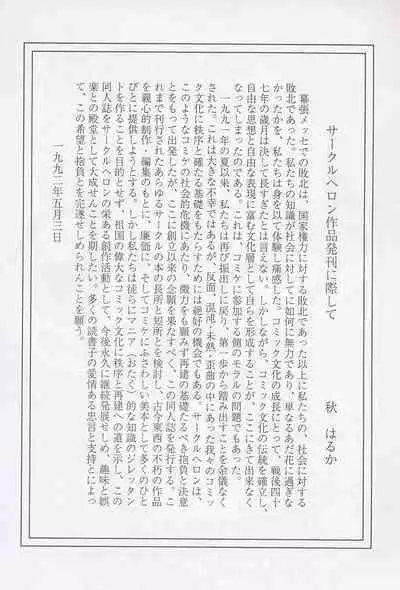 サークルヘロン作品発刊に際して
秋 はるか
幕張メッセでの敗北は、国家権力に対する敗北であった以上に私たちの、社会に対する
敗北であった。私たちの知識が社会に対して如何に無力であり、単なるあだ花に過ぎな
かったかを、私たちは身を以て体験し痛感した。コミック文化の成長にとって、戦後四十
七年の歳月は決して長すぎたとは言えない。しかしながら、コミック文化の伝統を確立し、
自由な思想と自由な表現に富む文化層として自らを形成することが、ここにきて出来なく
なってしまったのである。これは、コミケに参加する側のモラルの問題でもあった。
一九九一年の夏以来、私たちは再び振出しに戻り、第一歩から踏み出すことを余儀なく
された。これは大きな不幸ではあるが、反面、混沌・未熟・歪曲の中にあった我々のコミッ
ク文化に秩序と確たる基礎をもたらすためには絶好の機会でもある。サークルヘロンは、
このようなコミケの社会的危機にあたり、微力をも顧みず再建の基礎たるべき抱負と決意
とをもって出発したが、ここに創立以来の念願を果たすべく、この同人誌を発行する。こ
れまで刊行されたあらゆるサークルの本の長所と短所とを検討し、古今東西の不朽の作品
を親心的制作・編集のもとに、廉価に、そしてコミケにふさわしい美本として多くのひと
びとに提供しようとする。しかし私たちは徒らにマニア（おたく）的な知識のジレッタン
トを作ることを目的とせず、祖国の偉大なコミック文化に秩序と再建への道を示し、この
同人誌をサークルヘロンの栄ある創作活動として、今後永久に継続発展せしめ、趣味と娯
楽との殿堂として大成せんことを期したい。多くの読書子の愛情ある忠言と支持とによっ
て、この希望と抱負とを完遂せしめられんことを願う。
一九九二年五月三日